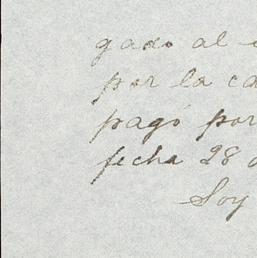 gado al
por la ca
pagó por
fecha 28 d
Soy